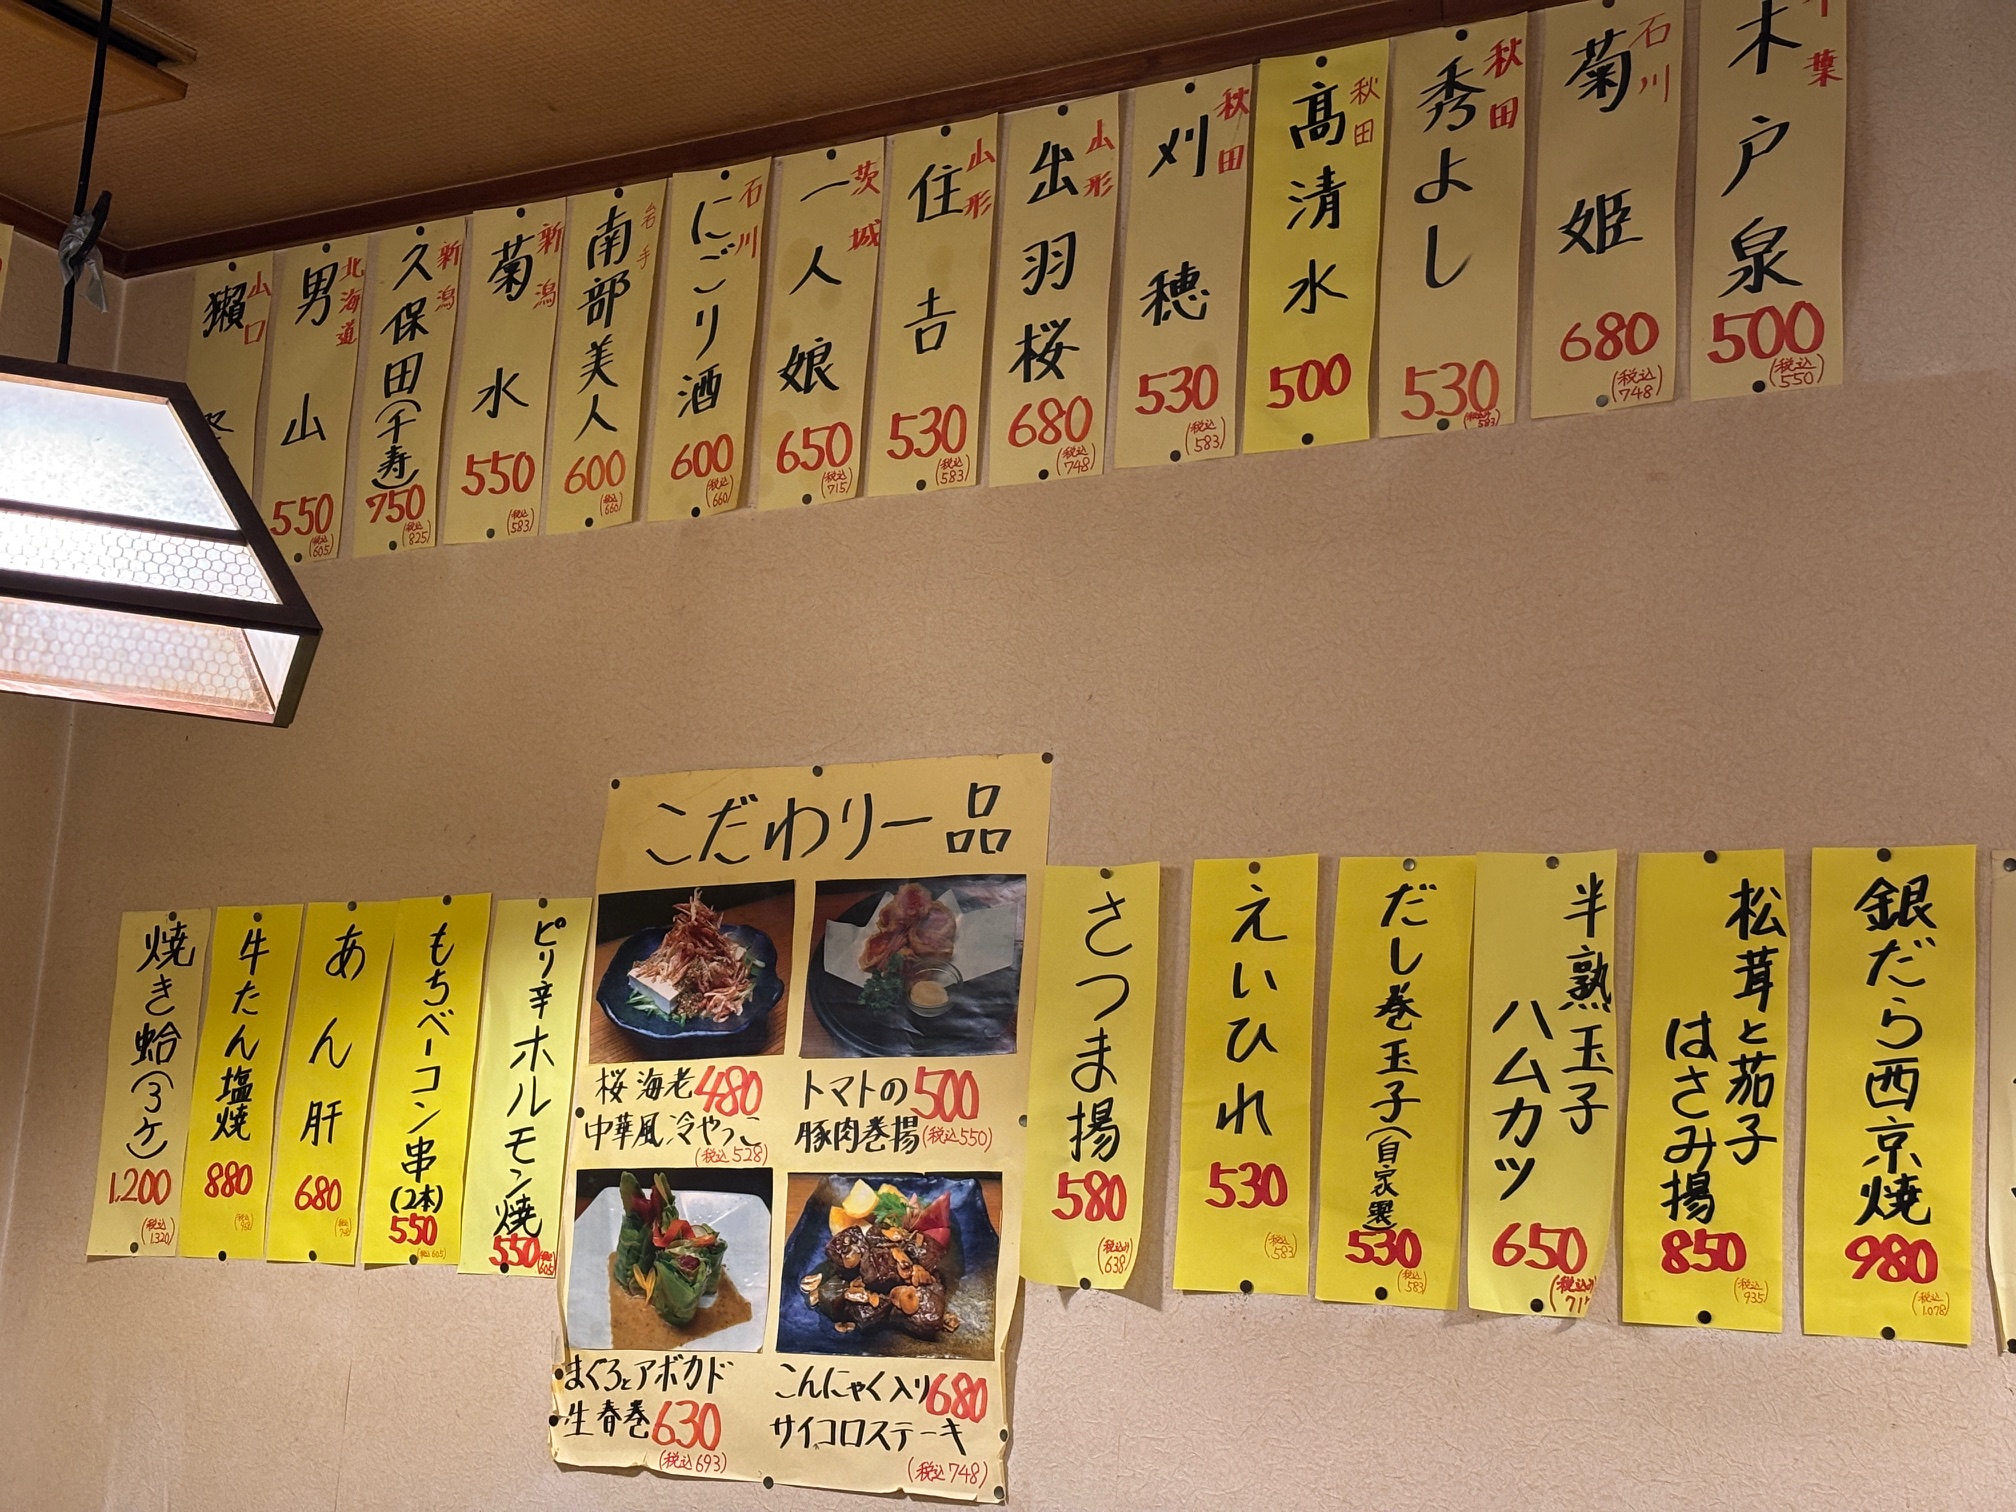 千葉
木戸泉
500
(税込550)
石川
菊姫
680
(税込748)
秋田
秀よし
530
(税込583)
秋田
高清水
500
秋田
刈穂
530
(税込583)
山形
出羽桜
680
(税込748)
山形
住吉
530
(税込583)
茨城
一人娘
650
(税込715)
石川
にごり酒
600
(税込660)
岩手
南部美人
600
(税込660)
新潟
菊水
550
(税込583)
新潟
久保田(千寿)
750
(税込825)
北海道
男山
550
(税込605)
山口
獺
銀だら西京焼
980
(税込1,078)
松茸と茄子
はさみ揚
850
(税込935)
半熟玉子
ハムカツ
650
(税込み
だし巻玉子(自家製)
530
(税込583)
えいひれ
530
(税込583)
さつま揚
580
(税込み638)
こだわり一品
桜海老
中華風冷やっこ
480
(税込528)
トマトの
豚肉巻揚
500
(税込550)
まぐろとアボカド
生春巻
630
(税込693)
こんにゃく入り
サイコロステーキ
680
(税込748)
ピリ辛ホルモン焼
550
(税込605)
もちベーコン串(2本)
550
(税込605)
あん肝
680
牛たん塩焼
880
焼き蛤(3ケ)
1,200
(税込1,320)